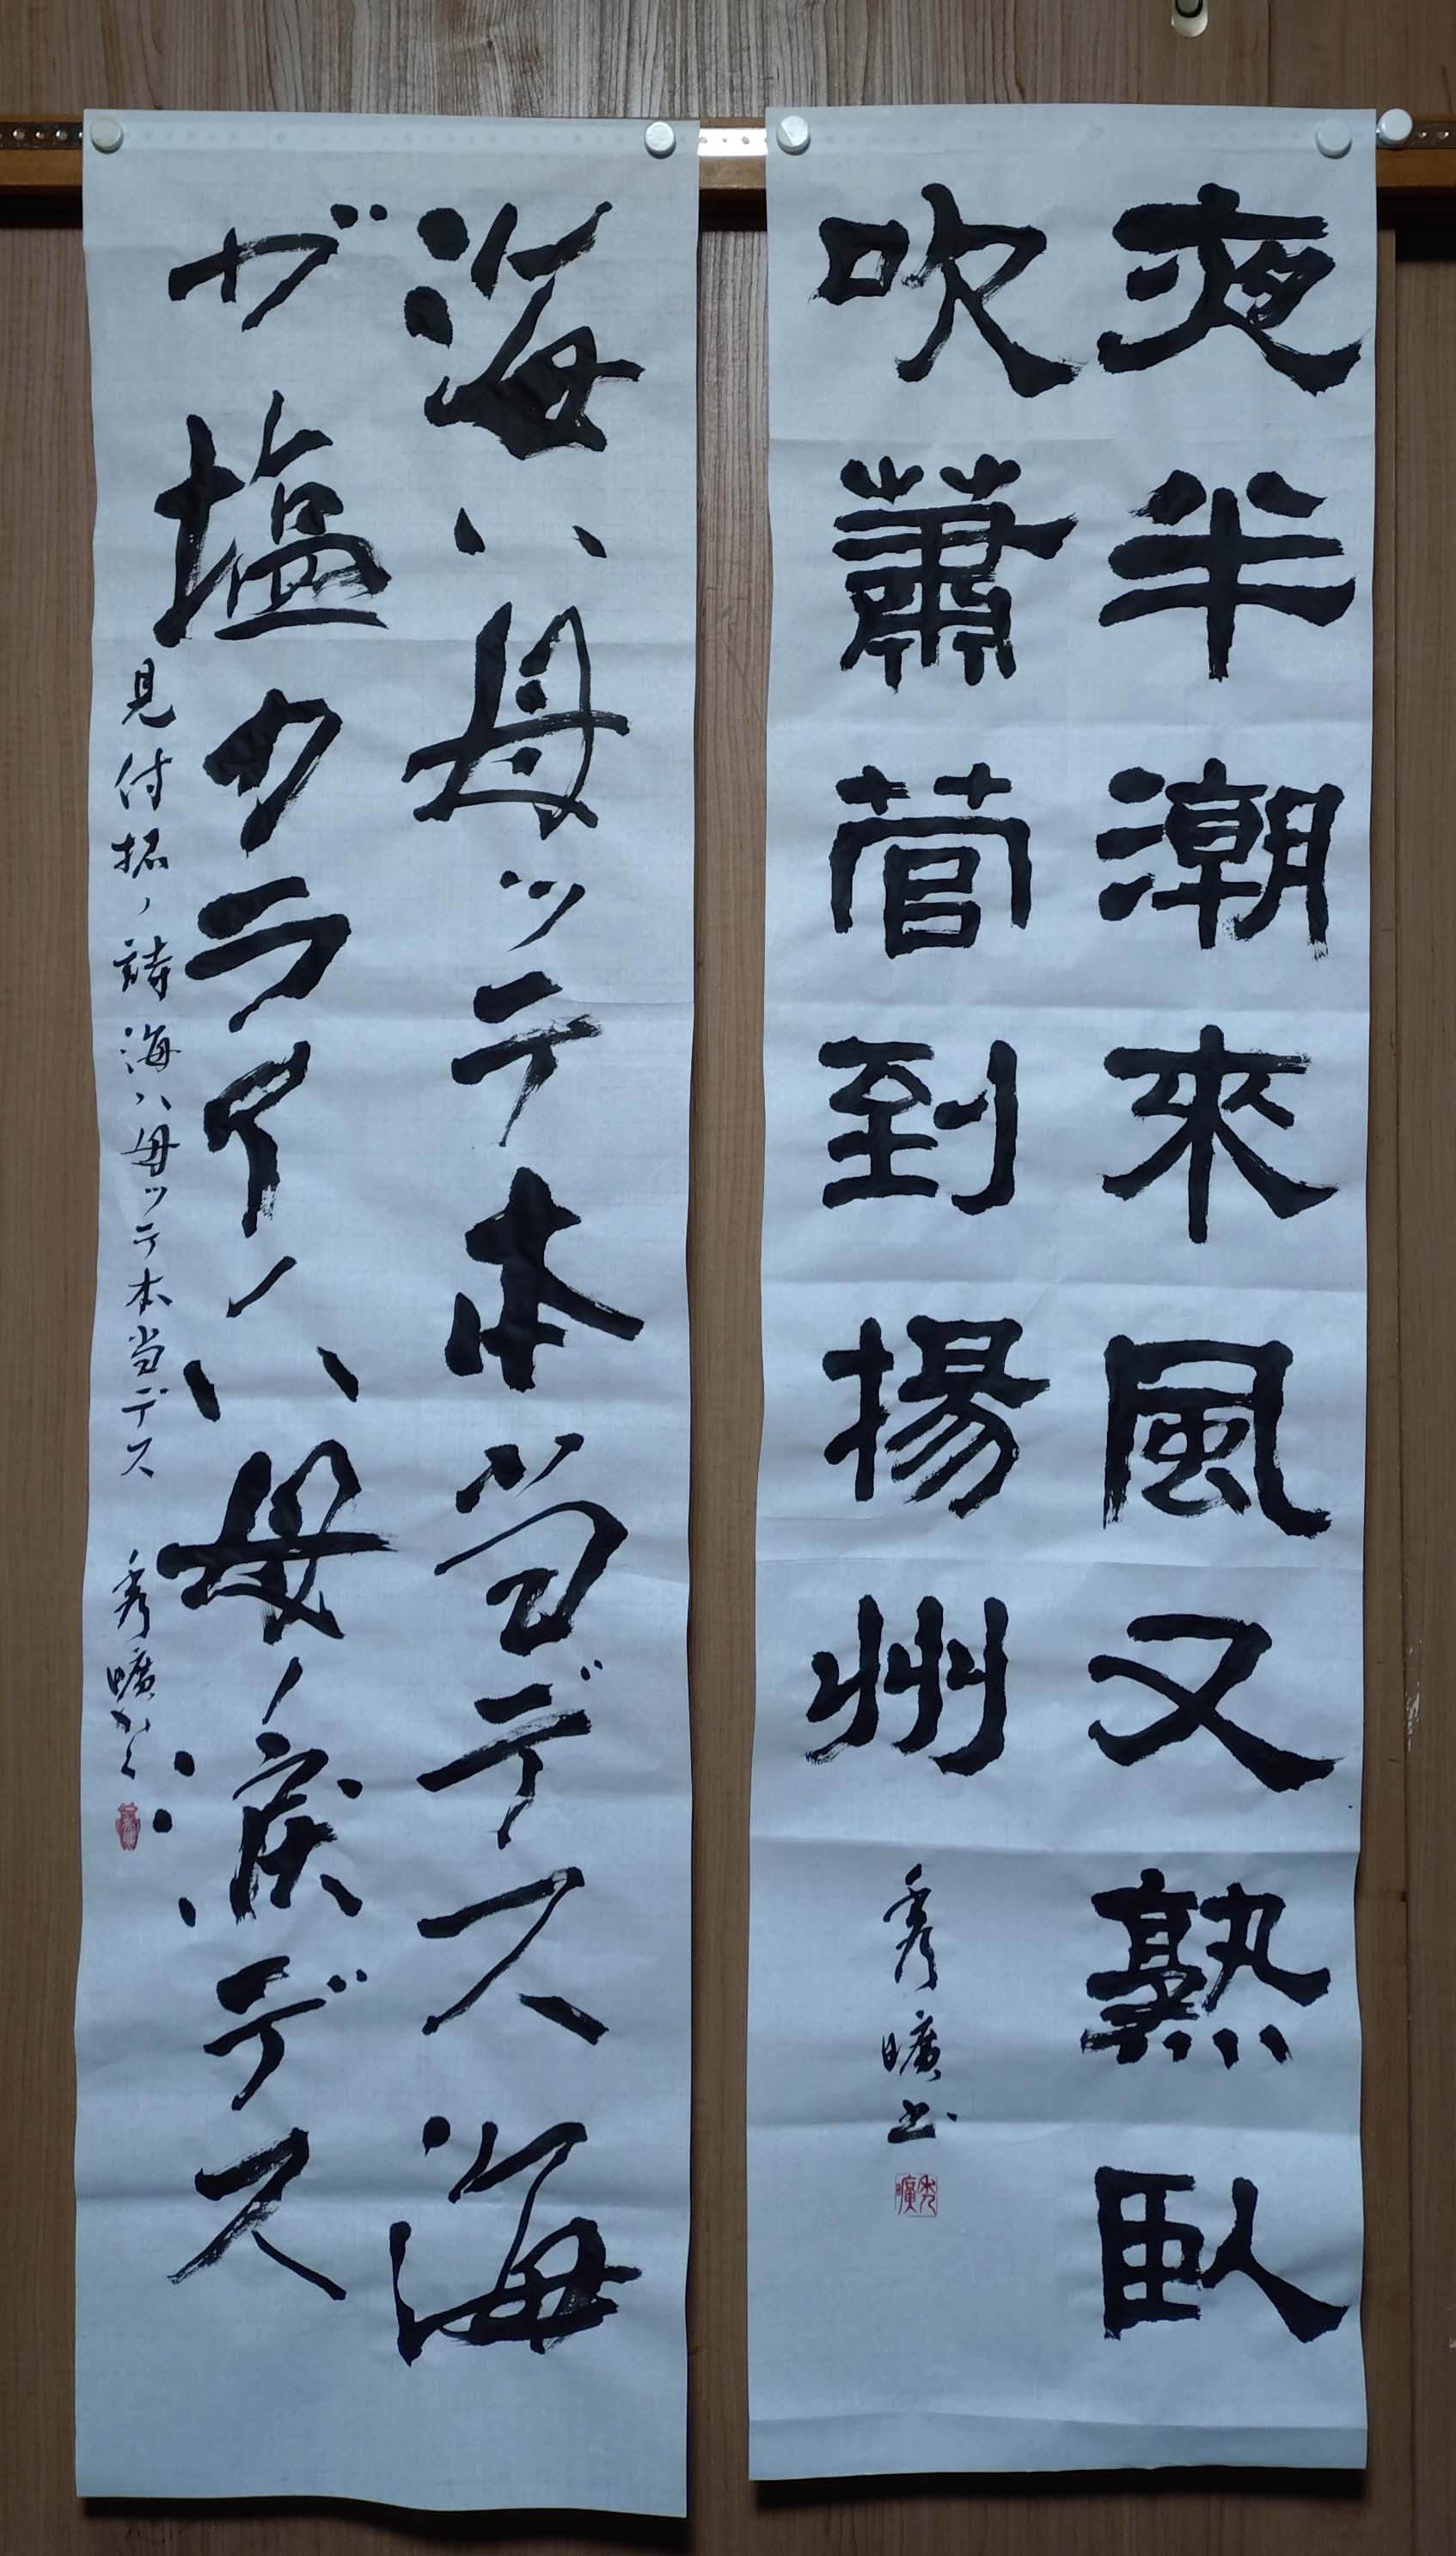 夜半潮來風又熟臥
吹蕭菅到揚州
秀曠書
秀曠
海ハ母ッテ本当デス海
ガ塩カライノハ母ノ涙デス
見付拓ノ詩 海ハ母ッテ本当デス 秀曠かく